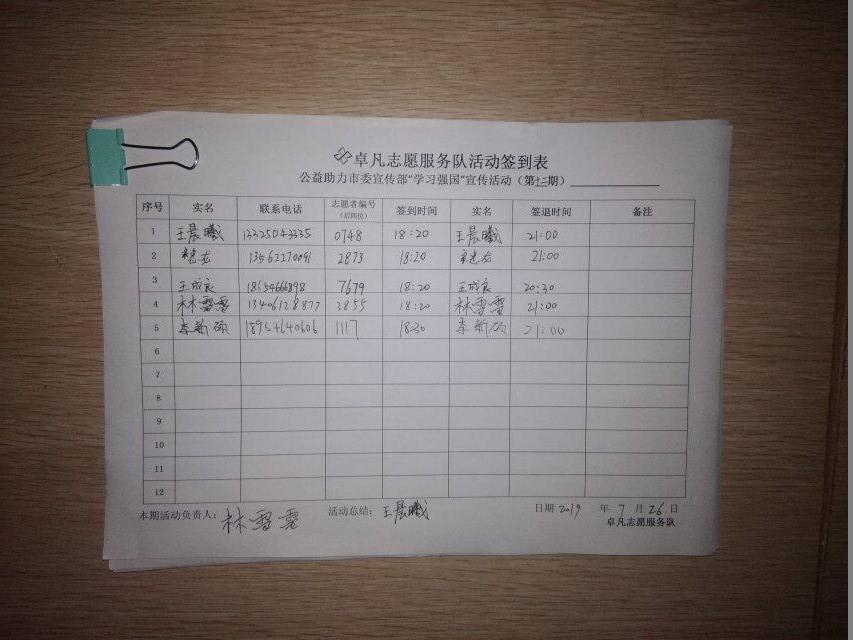 卓凡志愿服务队活动签到表
公益助力市委宣传部“学习强国”宣传活动（第十二期）
序号 实名 联系电话 志愿者编号（后四位） 签到时间 实名 签退时间 备注
1 王晨曦 13325043335 0748 18:20 王晨曦 21:00
2 13562270091 2873 18:20 21:00
3 王成良 18654666898 7679 18:20 王成良 20:30
4 林雪雯 13406128877 3855 18:20 林雪雯 21:00
5 李新硕 18954640606 1117 18:20 李新硕 21:00
6
7
8
9
10
11
12
本期活动负责人：林雪雯 活动总结：王晨曦 日期 2019 年 7 月 26 日
卓凡志愿服务队